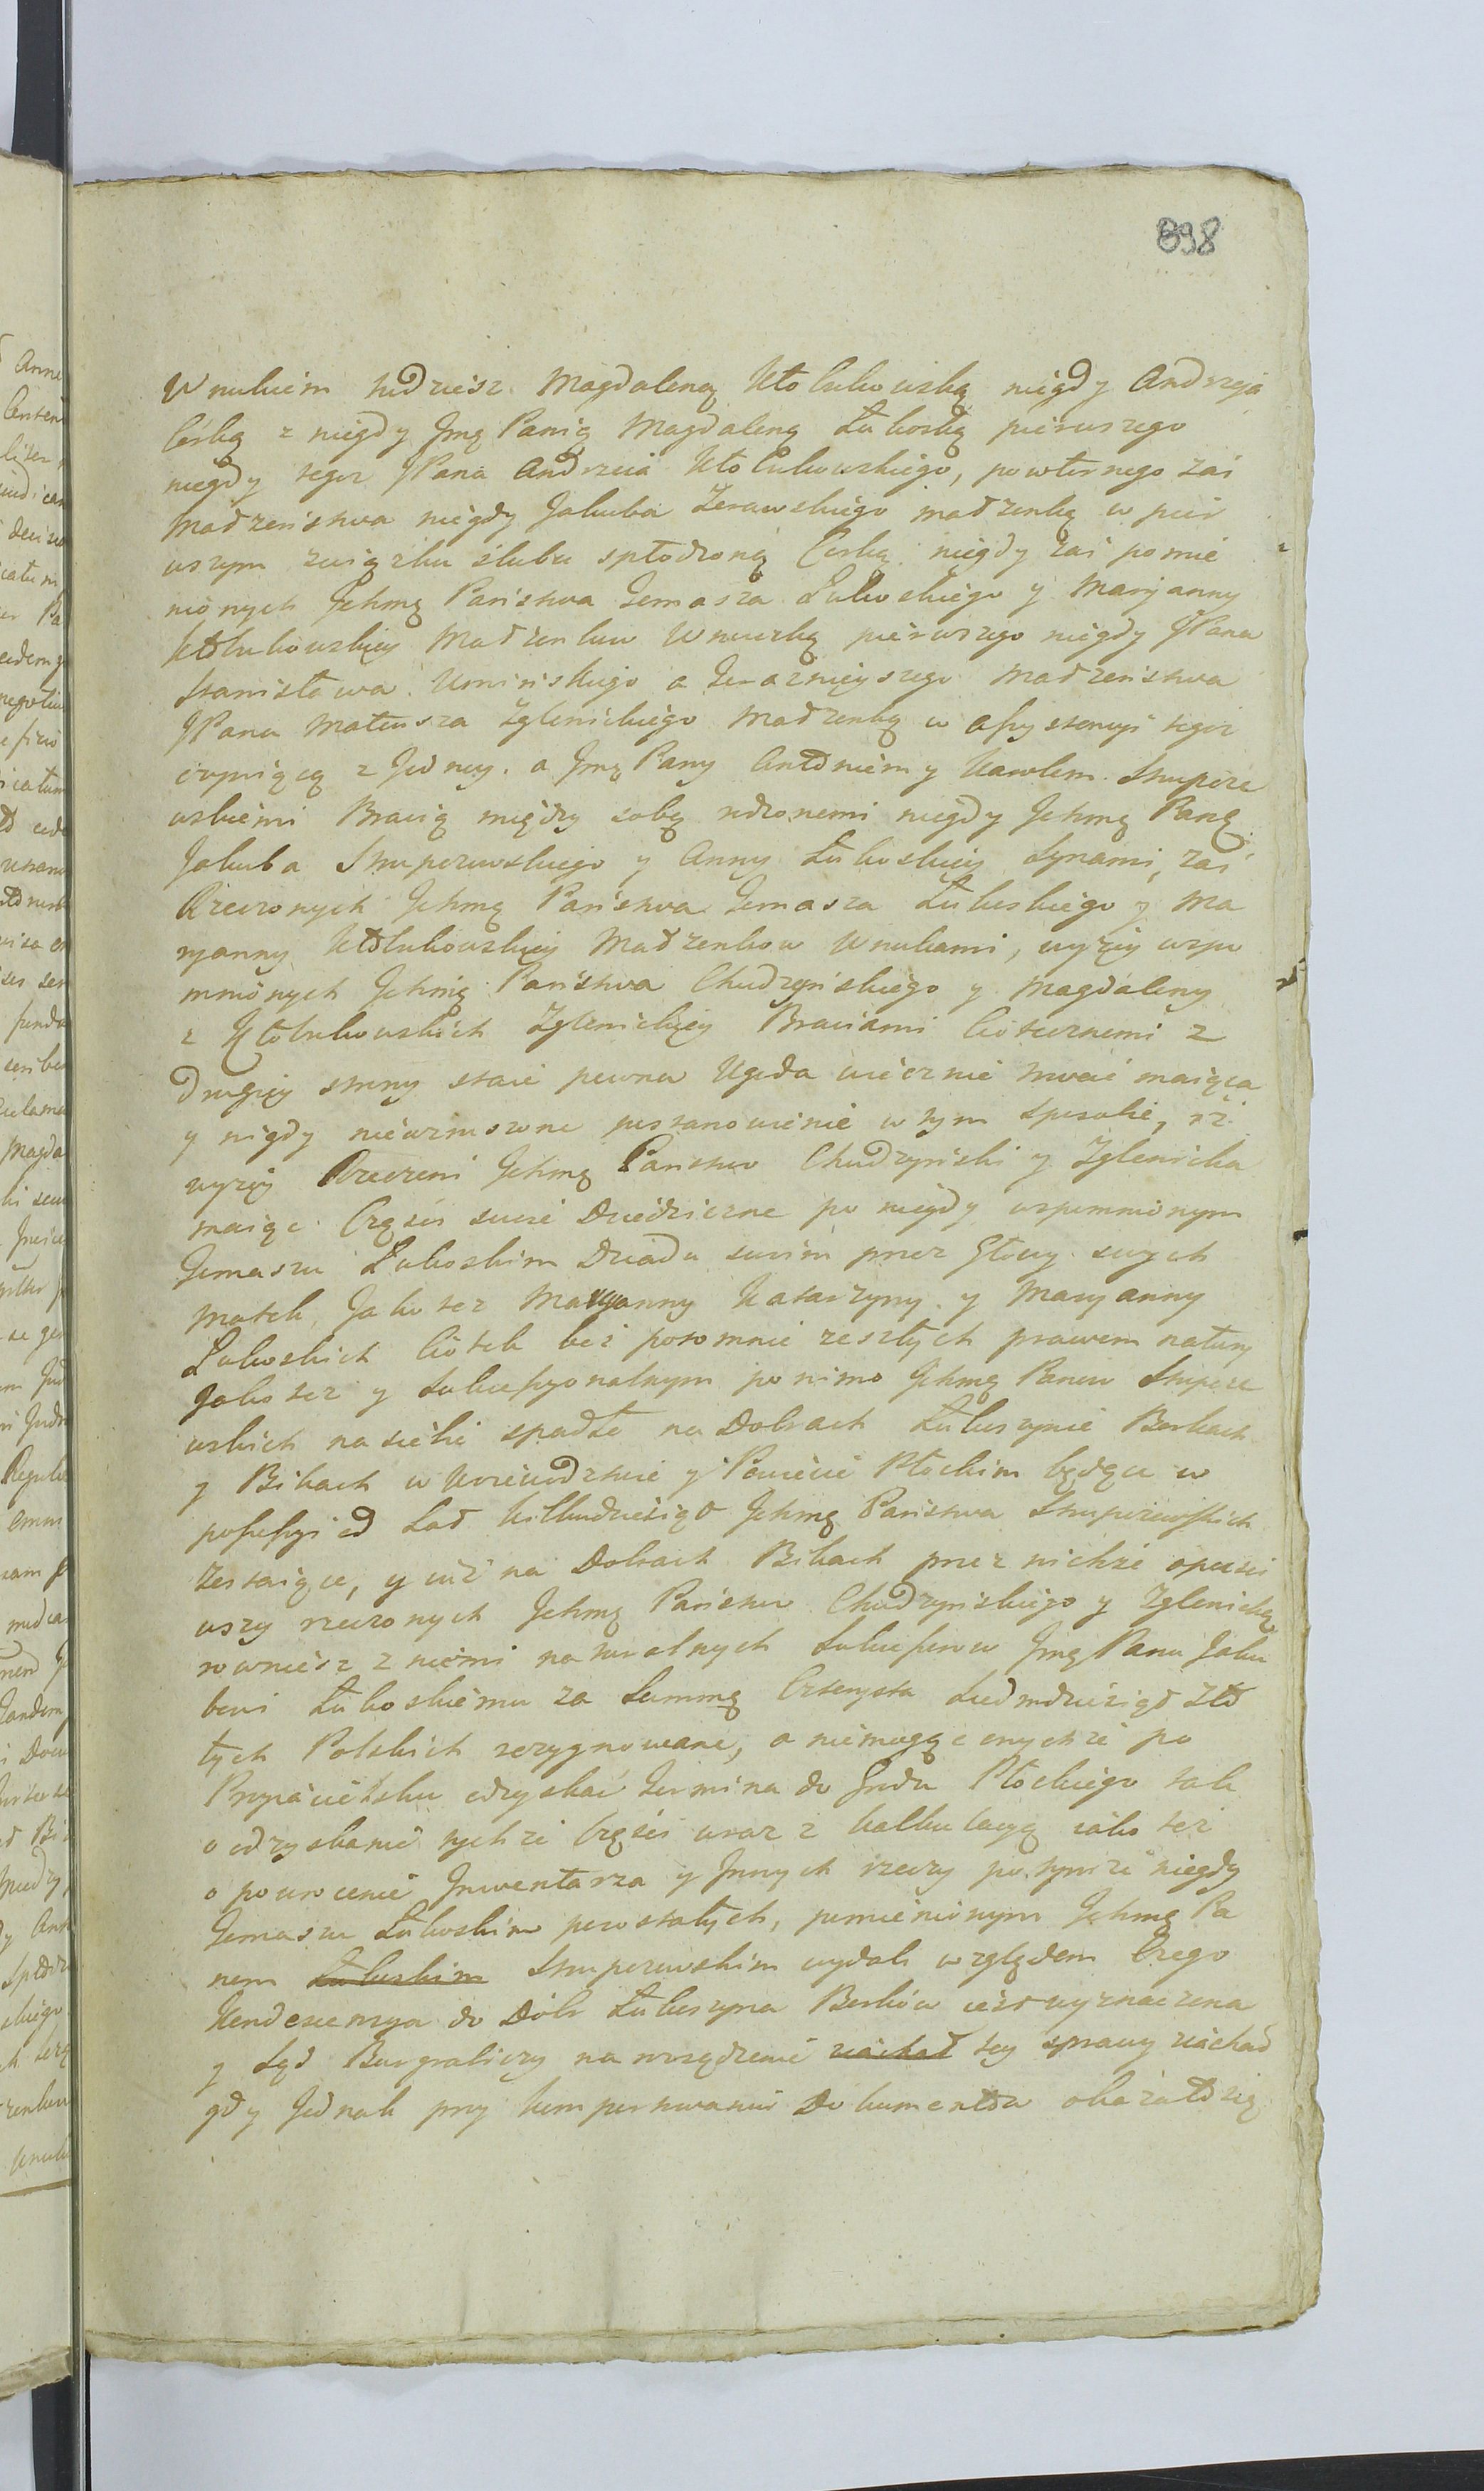 898
Wnukiem tudziesz Magdaleną Kłobukowską niegdy Andrzeja
Córką z niegdy Jmę Panią Magdaleną Łukoską pierwszego
niegdy tegoż JPana Andrzeia Kłobukowskiego, powtornego zaś
Małżeństwa niegdy Jakuba Zerawskiego małżenką w pier
wszym związku ślubu spłodzoną Corką niegdy zaś pomie
nionych Jchmę Państwa Tomasza Łukoskiego y Maryanny
Kłobukowskiey Małżenkow Wnuczką pierwszego niegdy JPana
Stanisława Uminskiego a Terazniejszego małżeństwa
JPana Mateusza Zglenickiego Małżenką w assystencyi tegoż
czyniącą z Jedney. a Jmę Pany Antoniem y Karolem Skupie
wskiemi Bracią między sobą rodzonemi niegdy Jchmę Pana
Jakuba Skuperowskiego y Anny Łukoskiey Synami, zaś
Rzeczonych Jchmę Państwa Tomasza Łukoskiego y Ma
ryanny Kłobukowskiey Małżenkow Wnukami, wyżey wspo
mnionych Jchmę Państwa Chudzyńskiego y Magdaleny
z Kłobukowskich Zglenickiey Braciami Ciotecznemi z
Drugiey strony staie pewna Ugoda wiecznie trwać maiąca
y nigdy niewzruszone postanowienie w tym sposobie, iż
wyżey Rzeczeni Jchmę Państwo Chudzyński y Zglenicka
maiąc Części swoie Dziedziczne po niegdy wspomnionym
Tomaszu Łukoskim Dziadu swoim przez Głowy swych
Matek, Jako też Maryanny Katarzyny y Maryanny
Łukoskich Ciotek bez potomnie zeszłych prawem natury
Jako też y Sukcessyonalnym po nimo Jchmę Panow Skupie
wskich na siebie spadłe na Dobrach Łukoszynie Borkach
y Bibach w Woiewodztwie y Powiecie Płockim będące w
possessyi od Lat Kilkudziesiąt Jchmę Państwa Skuperowskich
zostaiące, y też na Dobrach Bibach przez nichże opusci
wszy rzeczonych Jchmę Państwo Chudzyńskiego y Zglenicką
rowniesz z niemi naturalnych Sukcessorow Jmę Panu Jaku
bowi Łukoskiemu za Summę Czterysta Siedmdziesiąt Zło
tych Polskich rezygnowane, a niemogąc onychże po
Przyiacielsku odzyskać Termina do Grodu Płockiego tak
o odzyskanie tychże Części wraz z kalkulacyą iako też
o powrocenie Jnwentarza y Jnnych rzeczy po tymże niegdy
Tomaszu Łukoskim pozostałych, pomienionym Jchmę Pa
nom Łukoskim Skuperowskim wydali względem Czego
Kondescensya do Dóbr Łukoszyna Borków iest wyznaczona
y Sąd Burgrabiczy na rozsądzenie ziachał tey sprawy ziachał
gdy Jednak przy komportowaniu Dokumentow okazało się